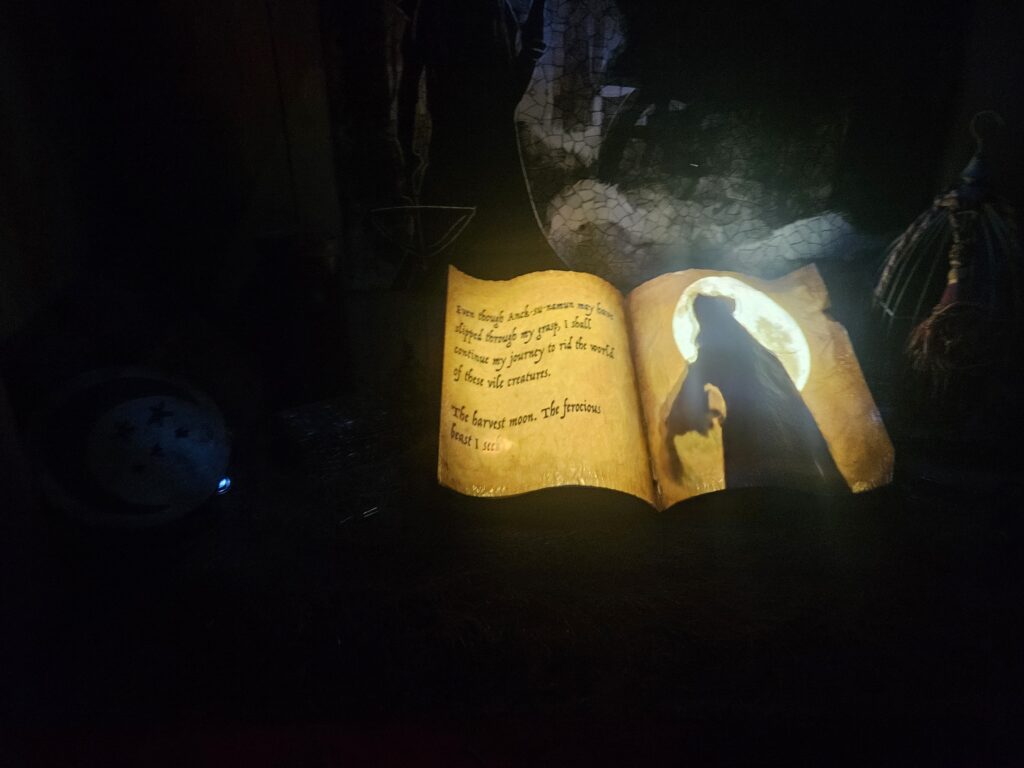 Even though Anck-su-namun may have
slipped through my grasp, I shall
continue my journey to rid the world
of these vile creatures.
The harvest moon. The ferocious
beast I seek